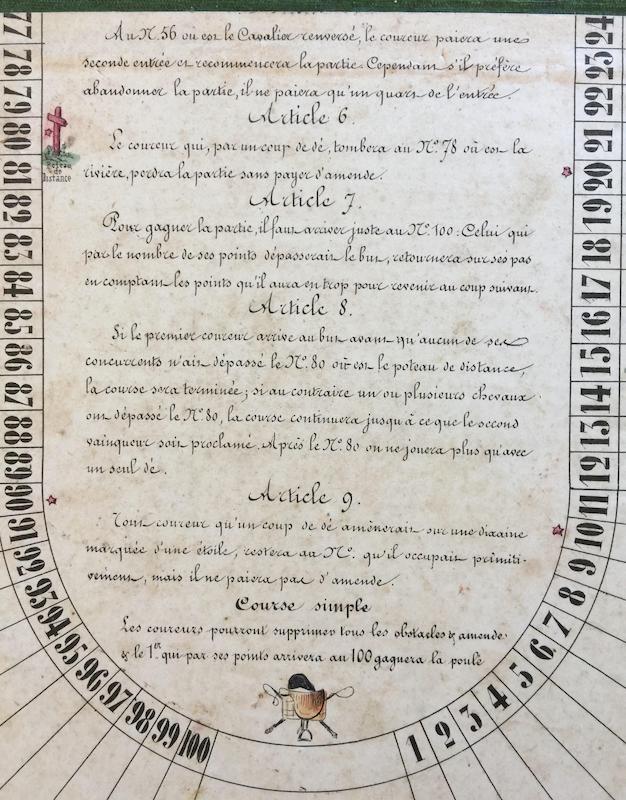 Au N.º 56 où est le Cavalier renversé, le coureur paiera une
seconde entrée et recommencera la partie. Cependant s'il préfère
abandonner la partie, il ne paiera qu'un quart de l'entrée.
Article 6.
Le coureur qui, par un coup de dé, tombera au Nº. 78 où est la
rivière, perdra la partie sans payer d'amende.
Article 7.
Pour gagner la partie, il faut arriver juste au Nº. 100 : Celui qui
par le nombre de ses points dépasserait le but, retournera sur ses pas
en comptant les points qu'il aura en trop pour revenir au coup suivant.
Article 8.
Si le premier coureur arrive au but avant qu'aucun de ses
concurrents n'ait dépassé le Nº. 80 où est le poteau de distance,
la course sera terminée ; si au contraire un ou plusieurs chevaux
ont dépassé le Nº 80, la course continuera jusqu'à ce que le second
vainqueur soit proclamé. Après le Nº. 80 on ne jouera plus qu'avec
un seul dé.
Article 9.
Tout coureur qu'un coup de dé amènerait sur une dixaine
marquée d'une étoile, restera au Nº. qu'il occupait primiti-
vement, mais il ne paiera pas d'amende.
Course simple
Les coureurs pourront supprimer tous les obstacles & amende
& le 1er qui par ses points arrivera au 100 gagnera la poule
Poteau
de
Distance
77
78
79
80
81
82
83
84
85
86
87
88
89
90
91
92
93
94
95
96
97
98
99
100
1
2
3
4
5
6
7
8
9
10
11
12
13
14
15
16
17
18
19
20
21
22
23
24